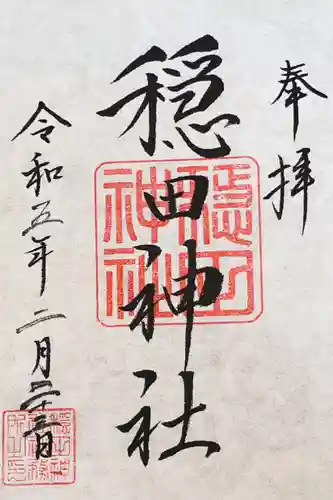 奉拝
穏田神社
令和五年二月二十三日
穏田神社